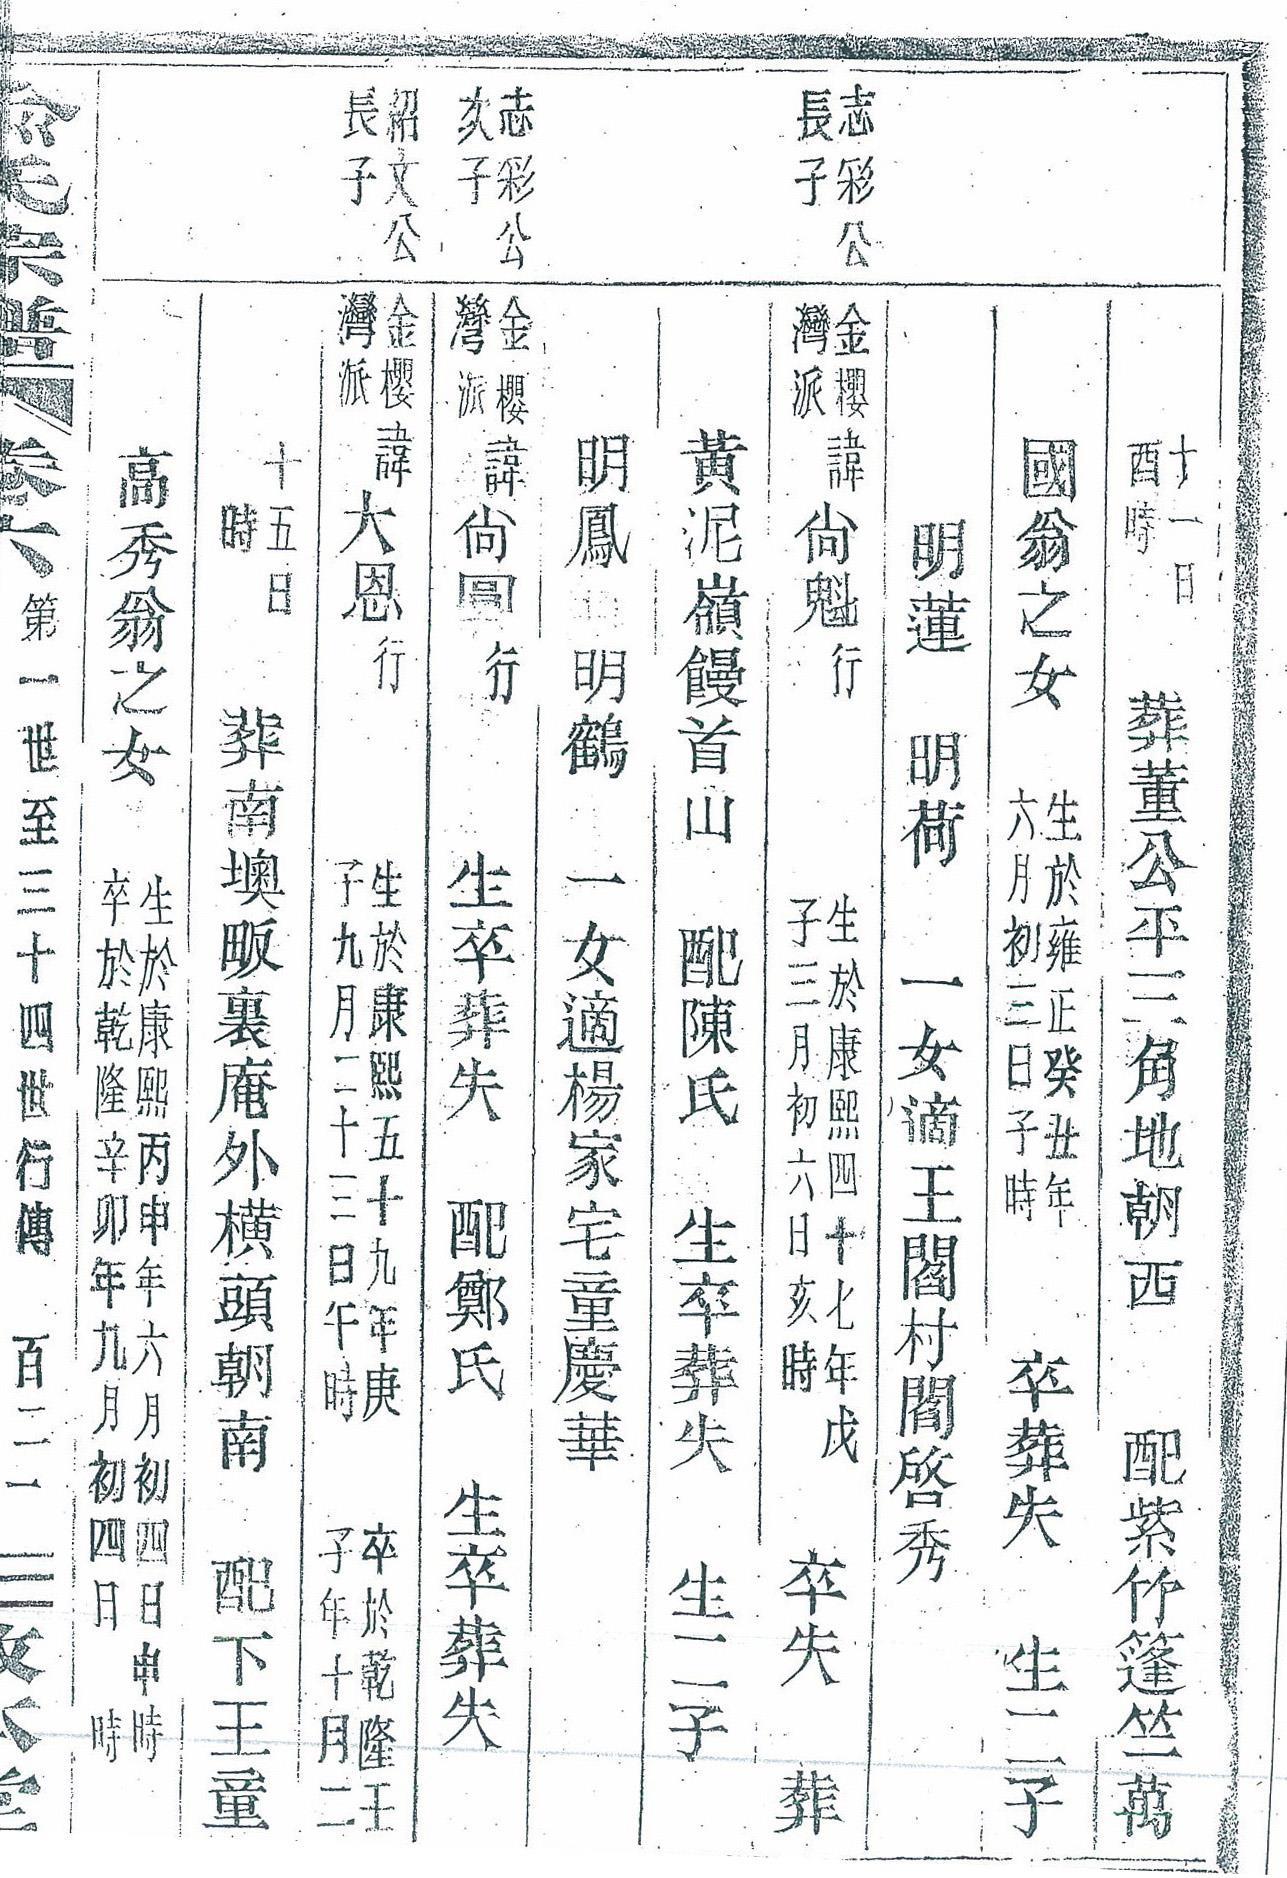 十一日
酉時
葬董公平三角地朝西　配紫竹篷竺萬
國翁之女
生於雍正癸丑年
六月初三日子時
卒葬失　生二子
明蓮　明荷　一女適王閻村閻啓秀
志彩公
長子
金櫻
灣派
諱尙魁行
生於康熙四十七年戊
子三月初六日亥時
卒失　葬
黃泥嶺饅首山　配陳氏　生卒葬失　生二子
明鳳　明鶴　一女適楊家宅童慶華
志彩公
次子
金櫻
灣派
諱尙圓行　生卒葬失　配鄭氏　生卒葬失
紹文公
長子
金櫻
灣派
諱大恩行
生於康熙五十九年庚
子九月二十三日午時
卒於乾隆壬
子年十月二
十五日
時
葬南墺畈裏庵外橫頭朝南　配下王童
高秀翁之女
生於康熙丙申年六月初四日申時
卒於乾隆辛卯年九月初四日　時
宗譜　卷六　第一世至三十四世行傳　百二一　堂